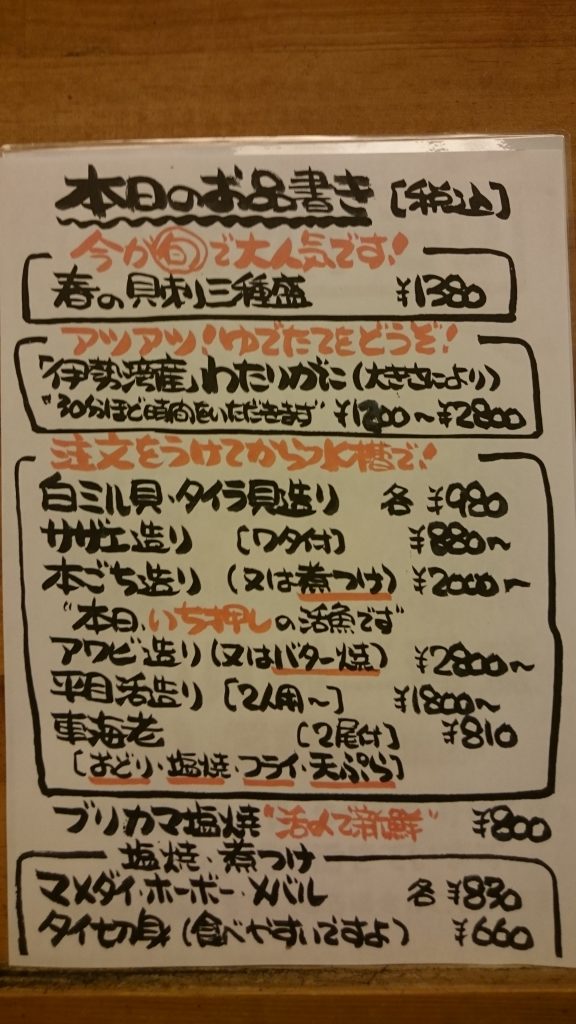 本日のお品書き [税込]
今が旬で大人気です!
春の貝刺三種盛 ¥1380
アツアツ!ゆでたてをどうぞ!
「伊勢湾産」わたりがに(大きさにより)
"30分ほど時間をいただきます" ¥1200～¥2800
注文をうけてから水槽で!
白ミル貝・タイラ貝造り 各 ¥980
サザエ造り [ワタ付] ¥880～
本ごち造り (又は煮つけ) ¥2000～
"本日、いち押しの活魚です"
アワビ造り(又はバター焼) ¥2800～
平目活造り [2人用～] ¥1800～
車海老 [2尾付] ¥810
[おどり・塩焼・フライ・天ぷら]
ブリカマ塩焼 "活〆で新鮮" ¥800
塩焼・煮つけ
マメダイ・ホーボー・メバル 各 ¥830
タイセの身(食べやすいですよ) ¥660